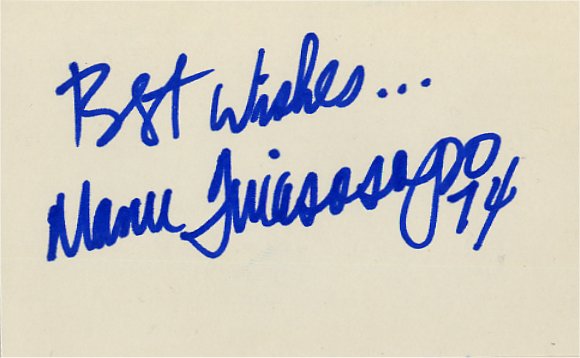 Best Wishes...
Manu Tuiasosopo
74